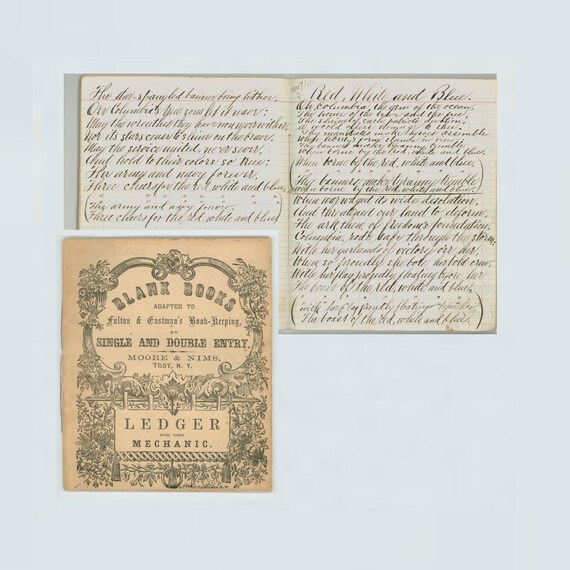 The star-spangled banner bring hither,
O'er Columbia's true sons let it wave:
May the wreaths they have won never wither,
Nor its stars cease to shine on the brave.
May the service united, ne'er sever,
And hold to their colors so true:
The army and navy forever,
Three cheers for the red, white and blue,
The army and navy forever,
Three cheers for the red white and blue
Red, White and Blue.
Oh, Columbia, the gem of the ocean,
The home of the brave and the free,
The shrine of each patriot's devotion,
A world offers homage to thee.
Thy mandates make heroes assemble
When liberty's form stands in view
Thy banners make tyranny tremble
When borne by the red, white and blue.
When borne by the red, white and blue,
Thy banners make tyranny tremble
When borne by the red, white and blue.
When war waged its wide desolation,
And threatened our land to deform,
The ark then of freedom's foundation,
Columbia, rode safe through the storm
With her garlands of victory o'er her,
When so proudly she bore her bold crew,
With her flag proudly floating before her
The boast of the red, white and blue,
with her flag proudly floating before her
The boast of the red, white and blue.
BLANK BOOKS
ADAPTED TO
Fulton & Eastman's Book-Keeping,
BY
SINGLE AND DOUBLE ENTRY,
MOORE & NIMS,
TROY, N. Y.
LEDGER
FOR THE
MECHANIC.